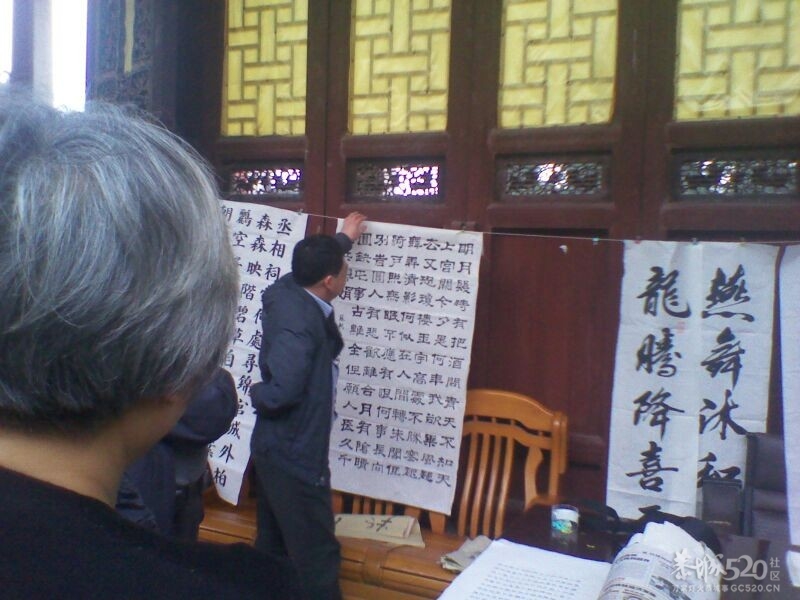 丞相祠何處尋錦官城外柏
森森映階碧草自
鸝空
朝
明月幾時有把酒問青天不知天
上宮闕今夕是何年我欲乘風歸
去又恐瓊樓玉宇高處不勝寒起
舞弄清影何似在人間轉朱閣低
綺戶照無眠不應有恨何事長向
別時圓人有悲歡離合月有陰晴
圓缺此事古難全但願人長久千
娟
燕舞沐和
龍騰降喜
恭城520社区
GC520.CN